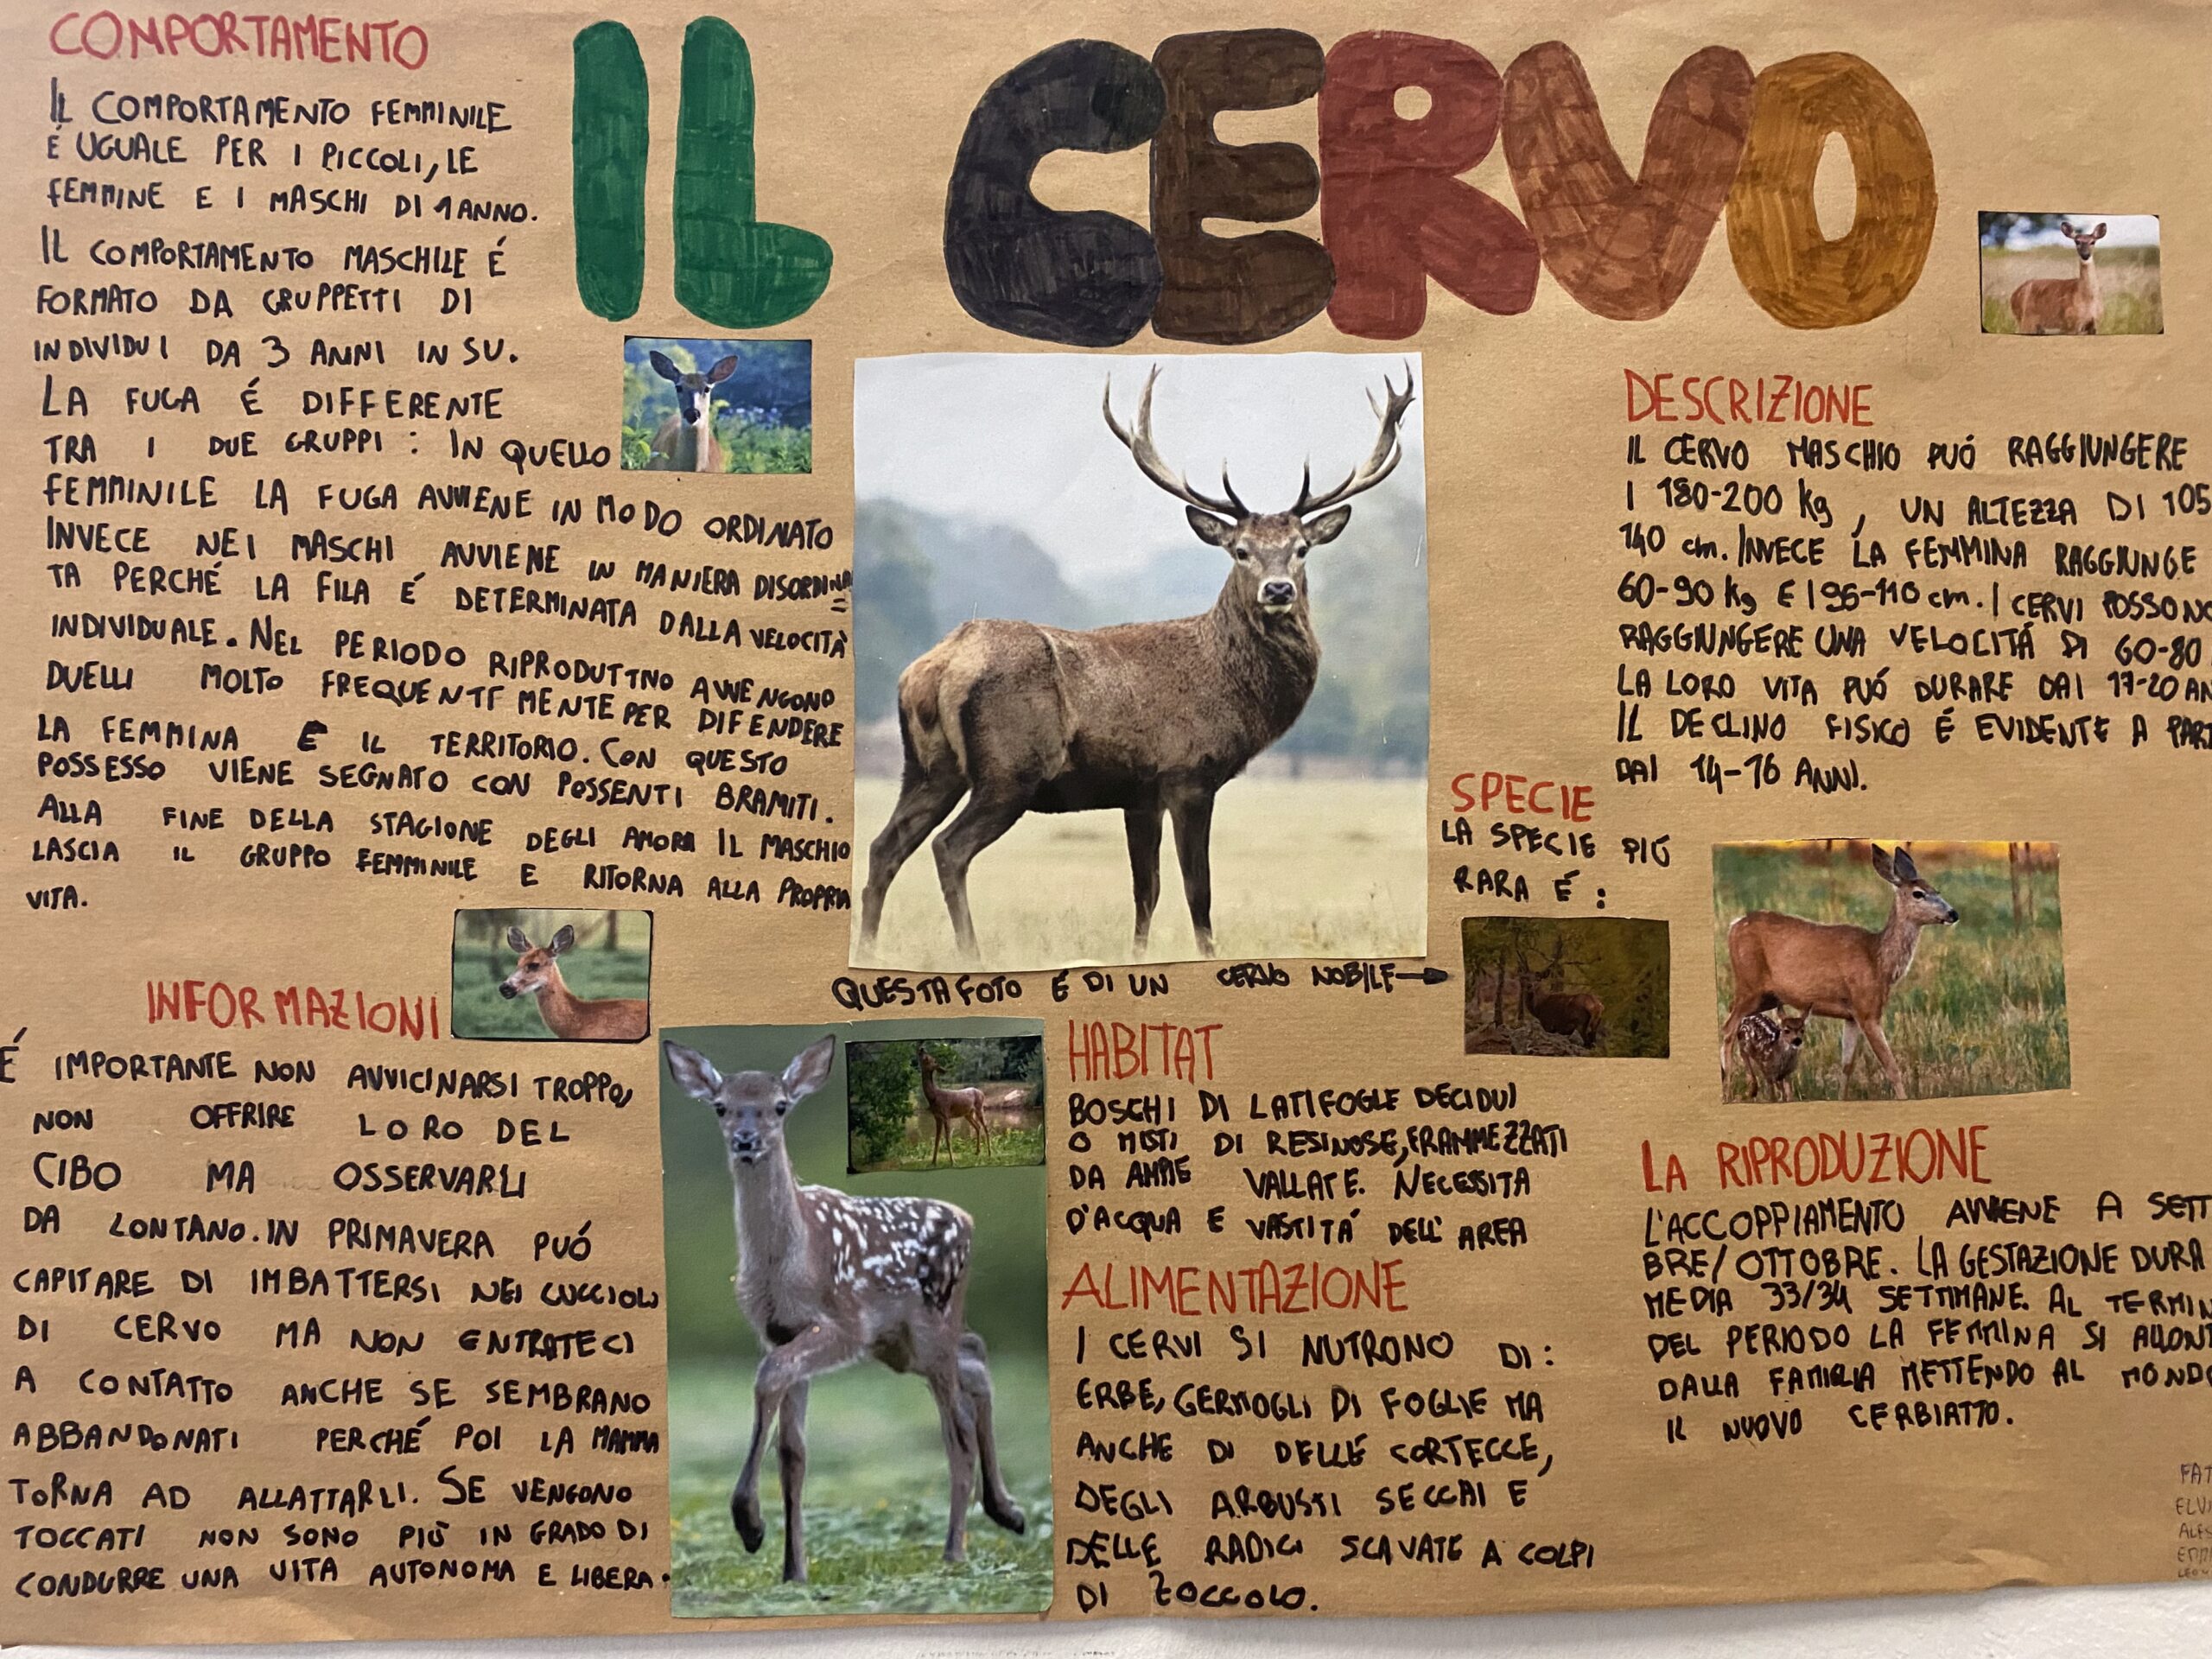 IL CERVO
COMPORTAMENTO
IL COMPORTAMENTO FEMMINILE
É UGUALE PER I PICCOLI, LE
FEMMINE E I MASCHI DI 1 ANNO.
IL COMPORTAMENTO MASCHILE É
FORMATO DA GRUPPETTI DI
INDIVIDUI DA 3 ANNI IN SU.
LA FUGA É DIFFERENTE
TRA I DUE GRUPPI: IN QUELLO
FEMMINILE LA FUGA AVVIENE IN MODO ORDINATO
INVECE NEI MASCHI AVVIENE IN MANIERA DISORDINA=
TA PERCHÉ LA FILA É DETERMINATA DALLA VELOCITÀ
INDIVIDUALE. NEL PERIODO RIPRODUTTIVO AVVENGONO
DUELLI MOLTO FREQUENTEMENTE PER DIFENDERE
LA FEMMINA E IL TERRITORIO. CON QUESTO
POSSESSO VIENE SEGNATO CON POSSENTI BRAMITI.
ALLA FINE DELLA STAGIONE DEGLI AMORI IL MASCHIO
LASCIA IL GRUPPO FEMMINILE E RITORNA ALLA PROPRIA
VITA.
INFORMAZIONI
É IMPORTANTE NON AVVICINARSI TROPPO,
NON OFFRIRE LORO DEL
CIBO MA OSSERVARLI
DA LONTANO. IN PRIMAVERA PUÓ
CAPITARE DI IMBATTERSI NEI CUCCIOLI
DI CERVO MA NON ENTRATECI
A CONTATTO ANCHE SE SEMBRANO
ABBANDONATI PERCHÉ POI LA MAMMA
TORNA AD ALLATTARLI. SE VENGONO
TOCCATI NON SONO PIÙ IN GRADO DI
CONDURRE UNA VITA AUTONOMA E LIBERA.
QUESTA FOTO É DI UN CERVO NOBILE→
HABITAT
BOSCHI DI LATIFOGLE DECIDUI
O MISTI DI RESINOSE, FRAMMEZZATI
DA AMPIE VALLATE. NECESSITA
D'ACQUA E VASTITÁ DELL'AREA
ALIMENTAZIONE
I CERVI SI NUTRONO DI:
ERBE, GERMOGLI DI FOGLIE MA
ANCHE DI DELLE CORTECCE,
DEGLI ARBUSTI SECCHI E
DELLE RADICI SCAVATE A COLPI
DI ZOCCOLO.
SPECIE
LA SPECIE PIÚ
RARA É:
DESCRIZIONE
IL CERVO MASCHIO PUÓ RAGGIUNGERE
I 180-200 kg, UN ALTEZZA DI 105
140 cm. INVECE LA FEMMINA RAGGIUNGE
60-90 kg E I 95-110 cm. I CERVI POSSONO
RAGGIUNGERE UNA VELOCITÁ DI 60-80
LA LORO VITA PUÓ DURARE DAI 17-20 AN
IL DECLINO FISICO É EVIDENTE A PART
DAI 14-16 ANNI.
LA RIPRODUZIONE
L'ACCOPPIAMENTO AVVIENE A SETT
BRE/OTTOBRE. LA GESTAZIONE DURA
MEDIA 33/34 SETTIMANE. AL TERMIN
DEL PERIODO LA FEMMINA SI ALLONT
DALLA FAMIGLIA METTENDO AL MONDO
IL NUOVO CERBIATTO.
FAT